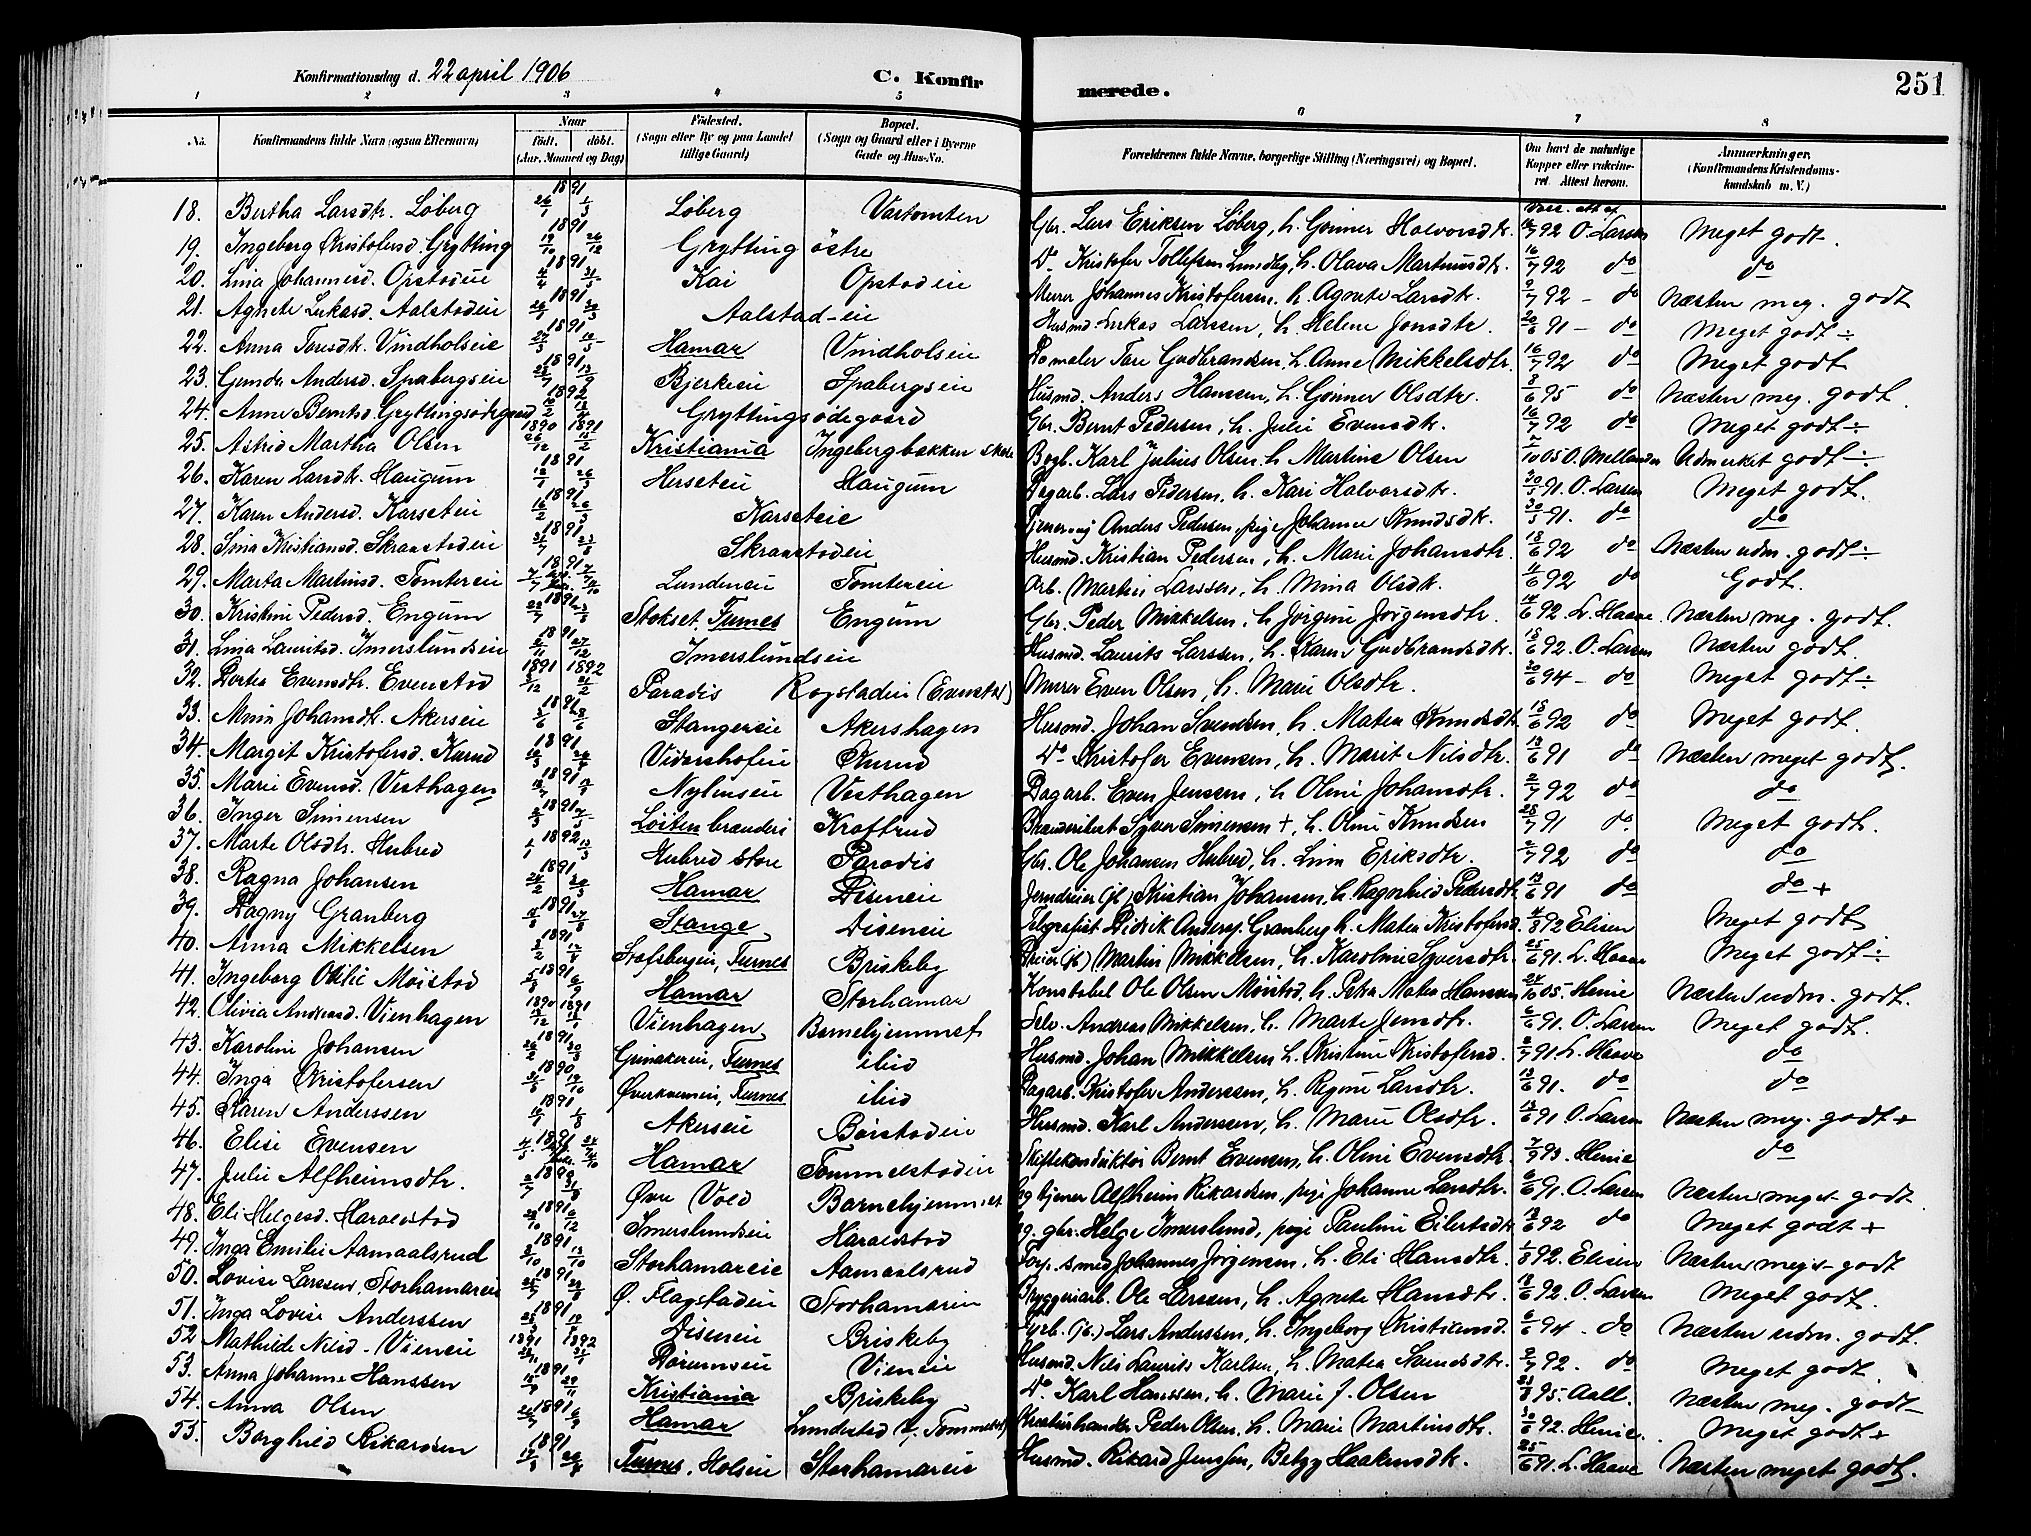 Konfirmationsdag d. 22 april 1906 C. Konfirmerede. 251
1 2 3 4 5 6 7 8
No. Konfirmandens fulde Navn (ogsaa Efternavn) Naar født. døbt. (Aar, Maaned og Dag) Födested. (Sogn eller By og paa Landet tillige Gaard) Bopæl. (Sogn og Gaard eller i Byerne Gade og Hus-No. Forældrenes fulde Navne, borgerlige Stilling (Næringsvei) og Bopæl. Om havt de naturlige Kopper eller vakcineret. Attest herom. Anmærkninger. (Konfirmandens Kristendomskundskab m. V.)
18. Bertha Larsdtr. Løberg 1891 26/1 1/3 Løberg Vartomten Gbr. Lars Eriksen Løberg, h. Gønner Halvorsdtr. 16/7 92 O. Larsen Meget godt.
19. Ingeborg Kristofersd. Grytting 1891 19/10 26/12 Grytting østre Do Kristofer Tollefsen Lundby, h. Olava Martinusdtr. 16/7 92 do do
20. Lina Johannesd. Opstadeie 1891 4/4 31/5 Kai Opstadeie Murer Johannes Kristofersen, h. Agnete Larsdtr. 2/7 92 - do Næsten meg. godt
21. Agnete Lukasd. Aalstadeie 1891 Aalstad-eie Husmd Lukas Larssen, h. Helene Jonsdtr. 20/6 91 - do Meget godt ÷
22. Anna Toresdtr. Vindholseie 1891 Hamar Vindholseie maler Tore Gudbrandsen, h. Anne Mikkelsdtr. 16/7 92 do Meget godt
23. Gunda Andersd. Spabergseie 1891 Bjerkeeie Spabergseie Husmd. Anders Hanssen, h. Gønner Olsdtr. 8/6 95 do Næsten meg. godt.
24. Anne Berntsd. Gryttingsødegaard 1892 Gryttingsødegaard Gbr. Bernt Pedersen, h. Julie Evensdtr. 16/7 92 do Meget godt ÷
25. Astrid Martha Olsen 1890 1891 26/12 15/2 Kristiania Ingebergbakken skole Bogb. Karl Julius Olsen h. Martine Olsen 2/10 05 O. Mellander Udmerket godt ÷
26. Karen Larsdtr. Haugum 1891 Herseteie Haugum Dagarb. Lars Pedersen, h. Kari Halvorsdtr. 30/5 91. O. Larsen Meget godt.
27. Karen Andersd. Karseteie 1891 16/2 Karseteie Anders Pedersen, pige Johanne Knudsdtr. 30/5 91. do do
28. Sina Kristiansd. Skrarstadeie 1891 Skrarstadeie Husmd. Kristian Pedersen, h. Marie Johansdtr. 18/6 92 do Næsten udm. godt ÷
29. Marta Martinsd. Tomtereie 1891 Lundeeie Tomtereie Arb. Martin Larssen, h. Mina Olsdtr. 11/6 92 do Godt.
30. Kristine Pedersd. Engum 1891 Stokset, Furnes Engum Gbr. Peder Mikkelsen, h. Jørgine Jørgensdtr. 14/6 92. L. Haave Næsten meg. godt.
31. Lina Lauritsd. Imerslundseie 1891 2/11 27/12 Imerslundseie Husmd. Laurits Larssen, h. Karen Gudbrandsdtr. 18/6 92. O. Larsen Næsten godt.
32. Dortea Evensdtr. Evenstad 1891 1892 Paradis Rogstadeie (Evenstad) Murer Even Olsen, h. Marie Olsdtr. 30/6 94 - do Meget godt ÷
33. Mina Johansdtr. Akerseie 1891 Stangereie Akershagen Husmd. Johan Svendsen, h. Matea Knudsdtr. 18/6 92 do Meget godt.
34. Margit Kristofersd. Kurud 1891 Vidershofeie Kurud Do Kristofer Evensen, h. Marit Nilsdtr. 13/6 91 do Næsten meget godt.
35. Marie Evensd. Vesthagen 1891 Nyleneie Vesthagen Dagarb. Even Jenssen, h. Oline Johansdtr. 2/7 92 do do
36. Inger Simensen 1891 Løiten brænderi Kroftrud Brænderibest. Syver Simensen +, h. Oline Knudsen 28/7 91 do Meget godt.
37. Marte Olsdtr. Hubred 1892 Hubred store Paradis Gbr. Ole Johansen Hubred, h. Lina Eriksdtr. 2/7 92 do do
38. Ragna Johansen 1891 Hamar Diseneie Jerndreier (jb.) Kristian Johansen, h. Ragnhild Pedersdtr. 13/6 91 do do +
39. Dagny Granberg 1891 Stange Diseneie Telegrafist Didrik Anders. Granberg h. Matea Kristofersd. 4/8 92 Elisen Meget godt
40. Anna Mikkelsen 1891 Stafsbergeie, Furnes Briskeby Dreier (jb.) Martin Mikkelsen, h. Karoline Syversdtr. 25/6 91. L. Haave Meget godt ÷
41. Ingeborg Otilie Møistad 1891 Hamar Storhamar Konstabel Ole Olsen Møistad, h. Petra Matea Hanssen 24/10 05. Henie Næsten udm. godt.
42. Olivia Andreasd. Vienhagen 1890 1891 Vienhagen Barnehjemmet Selv. Andreas Mikkelsen, h. Marte Jensdtr. 6/6 91. O. Larsen Meget godt.
43. Karoline Johansen 1891 26/2 30/3 Grinakereie, Furnes ibid Husmd. Johan Mikkelsen h. Kristine Kristofersd. 2/7 91 L. Haave do
44. Inga Kristofersen 1890 Øverkvernie, Furnes ibid Dagarb. Kristofer Anderssen, h. Regine Larsdtr. 13/6 91. do do
45. Karen Anderssen 1891 Akerseie Børstadeie Husmd. Karl Anderssen, h. Marie Olsdtr. 13/6 91 O. Larsen Næsten meg. godt +
46. Elise Evensen 1891 Hamar Tommelstadeie Skiftekonduktør Bernt Evensen, h. Oline Evensdtr. 7/9 93. Henie do
47. Julie Alfheimsdtr. Øvre Vold Barnehjemmet ug tjener Alfheim Rikardsen, pige Johanne Larsdtr. 6/6 91. O. Larsen Næsten meget godt
48. Eli Helgesd. Haraldstad 1891 Imerslundseie Haraldstad ug. gbr. Helge Imerslund, pige Pauline Eilertsdtr 18/6 92 do Meget godt +
49. Inga Emilie Aamaalsrud 1891 2/10 13/10 Storhamareie Aamaalsrud Torp. smed Johannes Jørgensen, h. Eli Hansdtr. 1/8 92. Elisen Næsten meget godt
50. Lovise Larssen, Storhamareie 1891 Ø. Flagstadeie Storhamareie Bryggeriarb. Ole Larssen, h. Agnete Hansdtr. 18/6 92. O. Larsen Meget godt.
51. Inga Lovise Anderssen 1891 Diseneie Briskeby Fyrb. (jb.) Lars Anderssen, h. Ingeborg Kristiansd. 6/6 94. do Næsten udm. godt.
52 Mathilde Nilsd. Vieneie 1891 1892 Dørumseie Vieneie Husmd. Nils Laurits Karlsen, h. Matea Svendsdtr. 2/7 92. do Meget godt
53. Anna Johanne Hanssen 1891 Kristiania Briskeby Do Karl Hanssen, h. Marie J. Olsen 21/8 95. Aall. Næsten meg. godt
54. Anna Olsen 1891 Hamar Lundstad v/ Tommelst. Kreaturhandler Peder Olsen, h. Marie Martinsdtr. 30/6 92. Henie. Meget godt +
55. Borghild Rikardsen 1891 Furnes, Holseie Storhamareie Husmd. Rikard Jenssen, Betzy Haakensdtr. 25/6 91. L. Haave Næsten meget godt.